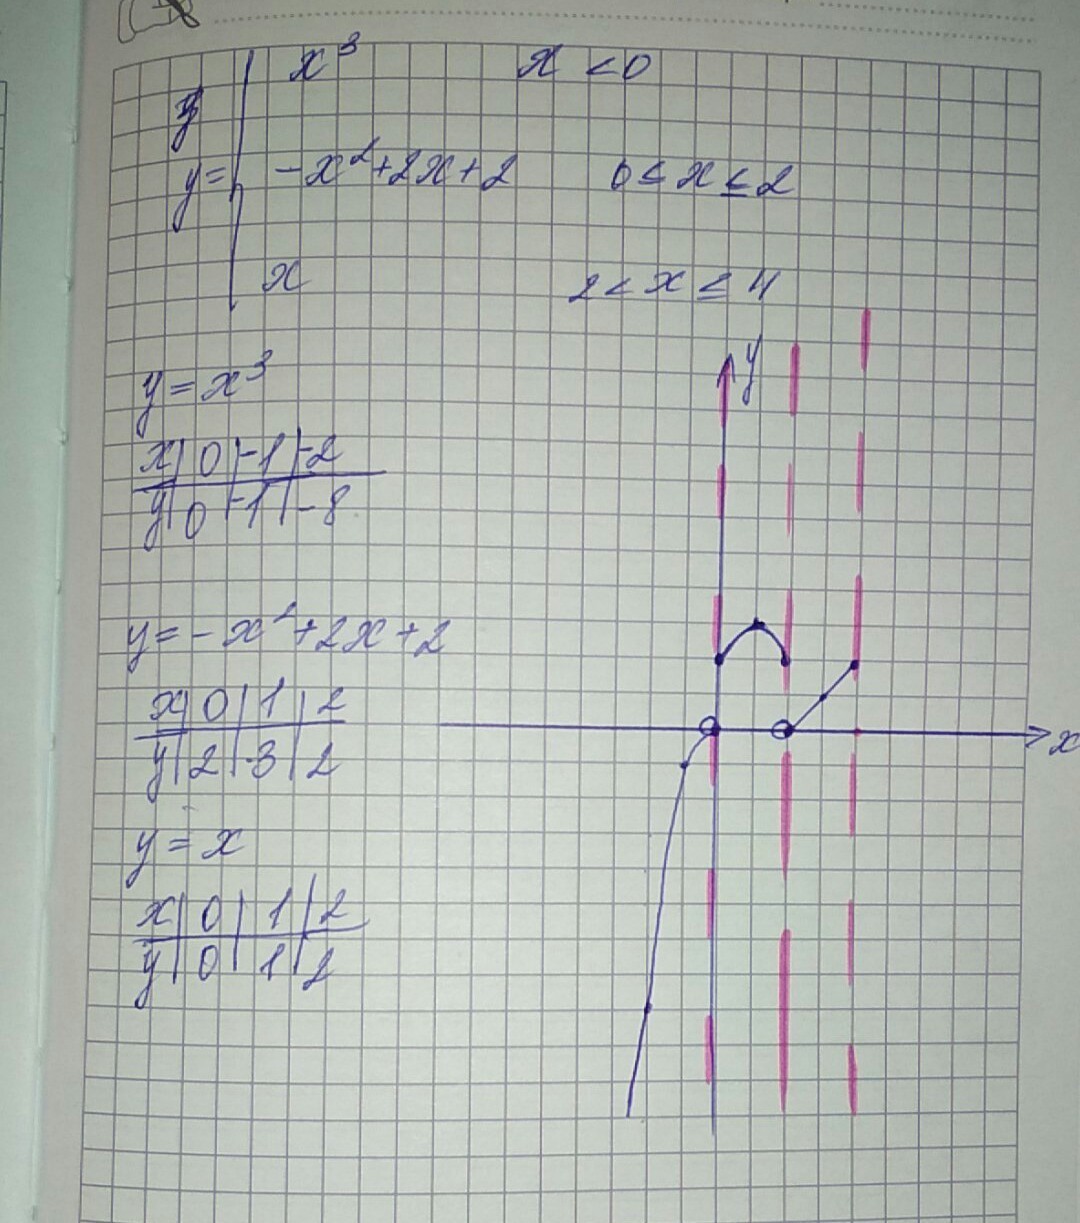 x³ x < 0
y
y = -x²+2x+2 0 ≤ x ≤ 2
x 2 < x ≤ 4
y = x³
x | 0 | -1 | -2
y | 0 | -1 | -8
y = -x²+2x+2
x | 0 | 1 | 2
y | 2 | 3 | 2
y = x
x | 0 | 1 | 2
y | 0 | 1 | 2
y
x